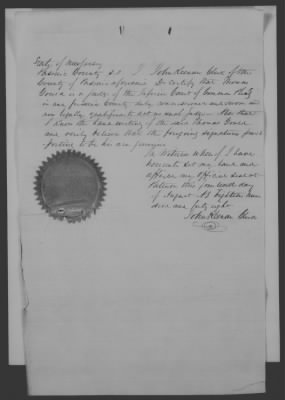 State of New Jersey
Passaic County S.S. I John Keenan Clerk of the
County of Passaic aforesaid Do Certify that Thomas
is a judge of the Inferior Court of Common Pleas
in and for said County duly commissioned and sworn and
legally qualified to act as such judge. Also that
I know the hand writing of the said Thomas
and verily believe that the foregoing signatures purporting
to be his are genuine
In Witness Whereof I have
hereunto set my hand and
affixed my official seal at
Paterson this fourteenth day
of August AD Eighteen hundred
and forty eight
John Keenan Clerk